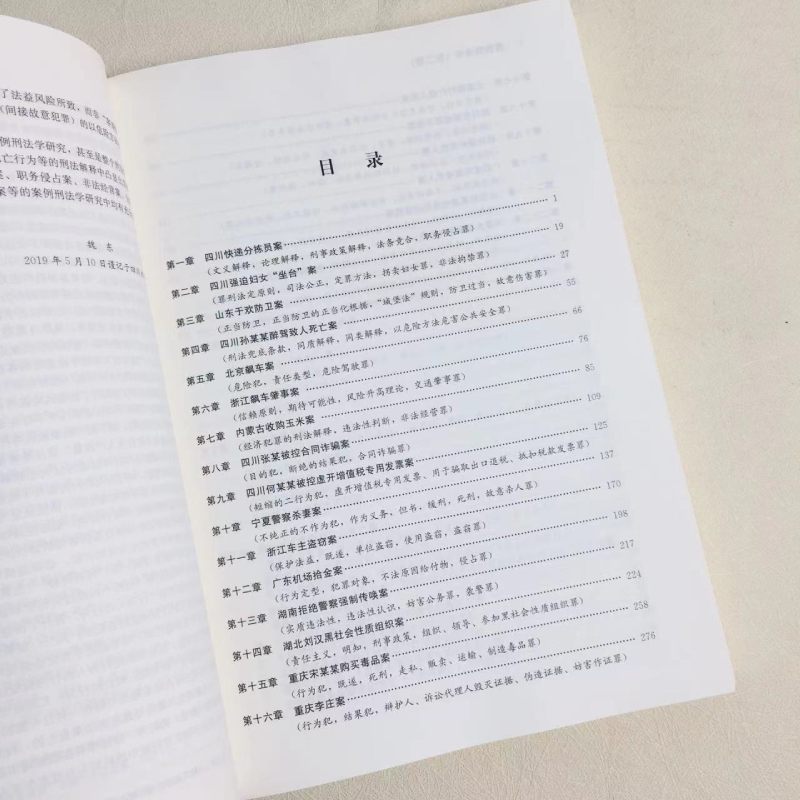 了法益风险所致，而非
（间接故意犯罪）的以危险
例刑法学研究，甚至是整个
亡行为等的刑法解释中凸显
案、职务侵占案、非法经营案、
案等的案例刑法学研究中均有
魏 东
2019年5月10日谨记于
目 录
第一章 四川快递分拣员案 1
（文义解释，论理解释，刑事政策解释，法条竞合，职务侵占罪）
第二章 四川强迫妇女“坐台”案 19
（罪刑法定原则，司法公正，定罪方法，拐卖妇女罪，非法拘禁罪）
第三章 山东于欢防卫案 27
（正当防卫，正当防卫的正当化根据，“城堡法”规则，防卫过当，故意伤害罪）
第四章 四川孙某某醉驾致人死亡案 55
（刑法兜底条款，同质解释，同类解释，以危险方法危害公共安全罪）
第五章 北京飙车案 66
（危险犯，责任类型，危险驾驶罪）
第六章 浙江飙车肇事案 76
（信赖原则，期待可能性，风险升高理论，交通肇事罪）
第七章 内蒙古收购玉米案 85
（经济犯罪的刑法解释，违法性判断，非法经营罪）
第八章 四川张某被控合同诈骗案 109
（目的犯，断绝的结果犯，合同诈骗罪）
第九章 四川何某某被控虚开增值税专用发票案 125
（短缩的二行为犯，虚开增值税专用发票、用于骗取出口退税、抵扣税款发票罪）
第十章 宁夏警察杀妻案 137
（不纯正的不作为犯，作为义务，但书，缓刑，死刑，故意杀人罪）
第十一章 浙江车主盗窃案 170
（保护法益，既遂，单位盗窃，使用盗窃，盗窃罪）
第十二章 广东机场拾金案 198
（行为定型，犯罪对象，不法原因给付物，侵占罪）
第十三章 湖南拒绝警察强制传唤案 217
（实质违法性，违法性认识，妨害公务罪，袭警罪）
第十四章 湖北刘汉黑社会性质组织案 224
（责任主义，明知，刑事政策，组织、领导、参加黑社会性质组织罪）
第十五章 重庆宋某某购买毒品案 258
（行为犯，既遂，死刑，走私、贩卖、运输、制造毒品罪）
第十六章 重庆李庄案 276
（行为犯，结果犯，辩护人、诉讼代理人毁灭证据、伪造证据、妨害作证罪）